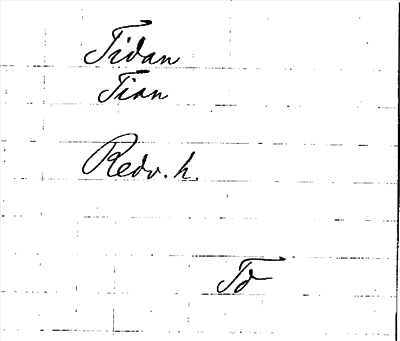 Tidan
Tian
Redv. h.
To